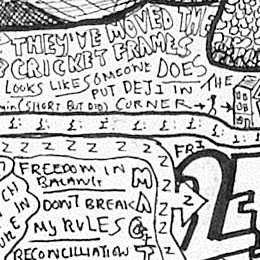 THEY'VE MOVED THE
CRICKET FRAMES
LOOKS LIKE SOMEONE DOES
PUT DEJI IN THE
min (SHORT BUT DID) CORNER →
1: 1: 1: 1: 1: 1: 1:
Z Z Z Z Z Z Z Z
FRI
FREEDOM IN
BALANCE
DON'T BREAK
MY RULES
RECONCILLIATION
CH
IN
Z
2